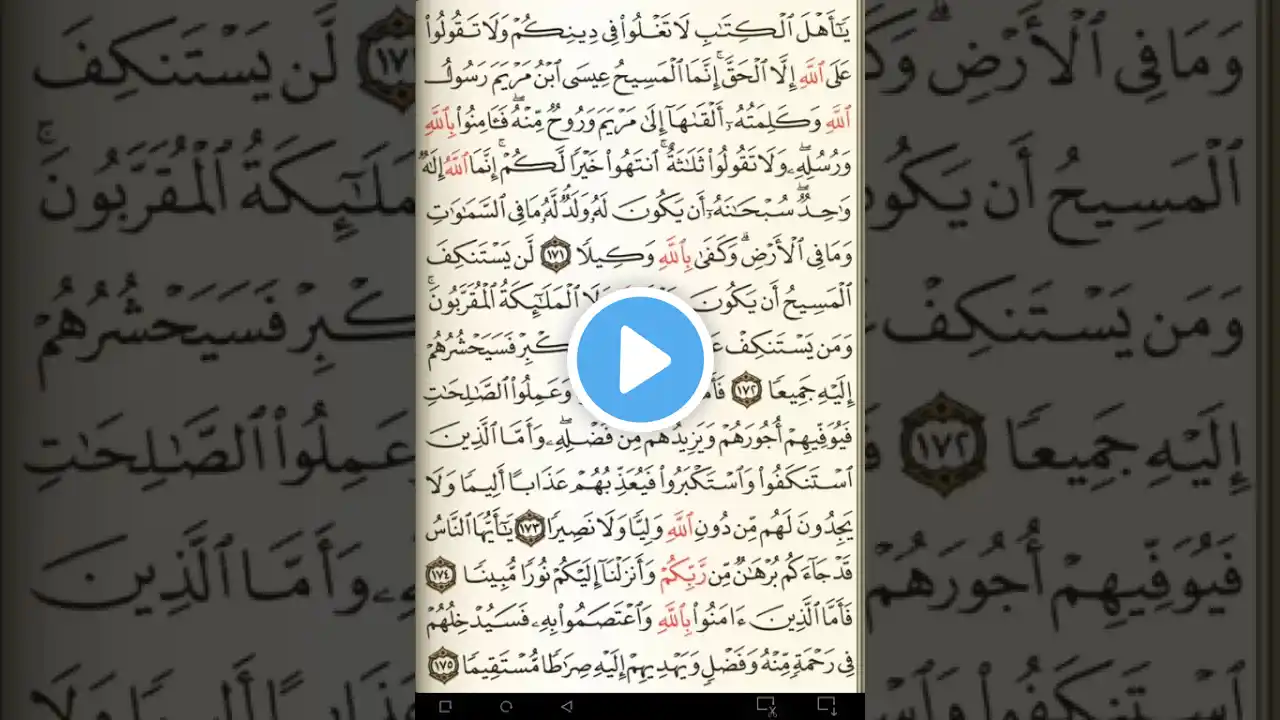 يَٰٓأَهۡلَ ٱلۡكِتَٰبِ لَا تَغۡلُواْ فِي دِينِكُمۡ وَلَا تَقُولُواْ
عَلَى ٱللَّهِ إِلَّا ٱلۡحَقَّۚ إِنَّمَا ٱلۡمَسِيحُ عِيسَى ٱبۡنُ مَرۡيَمَ رَسُولُ
ٱللَّهِ وَكَلِمَتُهُۥٓ أَلۡقَىٰهَآ إِلَىٰ مَرۡيَمَ وَرُوحٞ مِّنۡهُۖ فَـَٔامِنُواْ بِٱللَّهِ
وَرُسُلِهِۦۖ وَلَا تَقُولُواْ ثَلَٰثَةٌۚ ٱنتَهُواْ خَيۡرٗا لَّكُمۡۚ إِنَّمَا ٱللَّهُ إِلَٰهٞ
وَٰحِدٞۖ سُبۡحَٰنَهُۥٓ أَن يَكُونَ لَهُۥ وَلَدٞۘ لَّهُۥ مَا فِي ٱلسَّمَٰوَٰتِ
وَمَا فِي ٱلۡأَرۡضِۗ وَكَفَىٰ بِٱللَّهِ وَكِيلٗا ١٧١ لَّن يَسۡتَنكِفَ
ٱلۡمَسِيحُ أَن يَكُونَ وَلَا ٱلۡمَلَٰٓئِكَةُ ٱلۡمُقَرَّبُونَۚ
وَمَن يَسۡتَنكِفۡ فَسَيَحۡشُرُهُمۡ
إِلَيۡهِ جَمِيعٗا ١٧٢ وَعَمِلُواْ ٱلصَّٰلِحَٰتِ
فَيُوَفِّيهِمۡ أُجُورَهُمۡ وَيَزِيدُهُم مِّن فَضۡلِهِۦۖ وَأَمَّا ٱلَّذِينَ
ٱسۡتَنكَفُواْ وَٱسۡتَكۡبَرُواْ فَيُعَذِّبُهُمۡ عَذَابًا أَلِيمٗا وَلَا
يَجِدُونَ لَهُم مِّن دُونِ ٱللَّهِ وَلِيّٗا وَلَا نَصِيرٗا ١٧٣ يَٰٓأَيُّهَا ٱلنَّاسُ
قَدۡ جَآءَكُم بُرۡهَٰنٞ مِّن رَّبِّكُمۡ وَأَنزَلۡنَآ إِلَيۡكُمۡ نُورٗا مُّبِينٗا ١٧٤
فَأَمَّا ٱلَّذِينَ ءَامَنُواْ بِٱللَّهِ وَٱعۡتَصَمُواْ بِهِۦ فَسَيُدۡخِلُهُمۡ
فِي رَحۡمَةٖ مِّنۡهُ وَفَضۡلٖ وَيَهۡدِيهِمۡ إِلَيۡهِ صِرَٰطٗا مُّسۡتَقِيمٗا ١٧٥